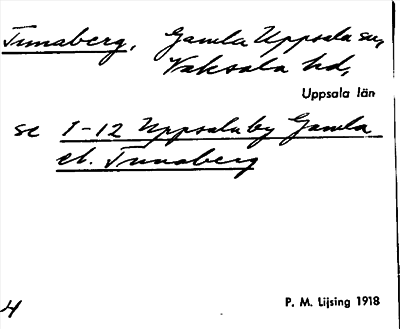 Tunaberg, Gamla Uppsala sn,
Vaksala hd,
Uppsala län
se 1-12 Uppsala by Gamla
el. Tunaberg
4
P. M. Lijsing 1918